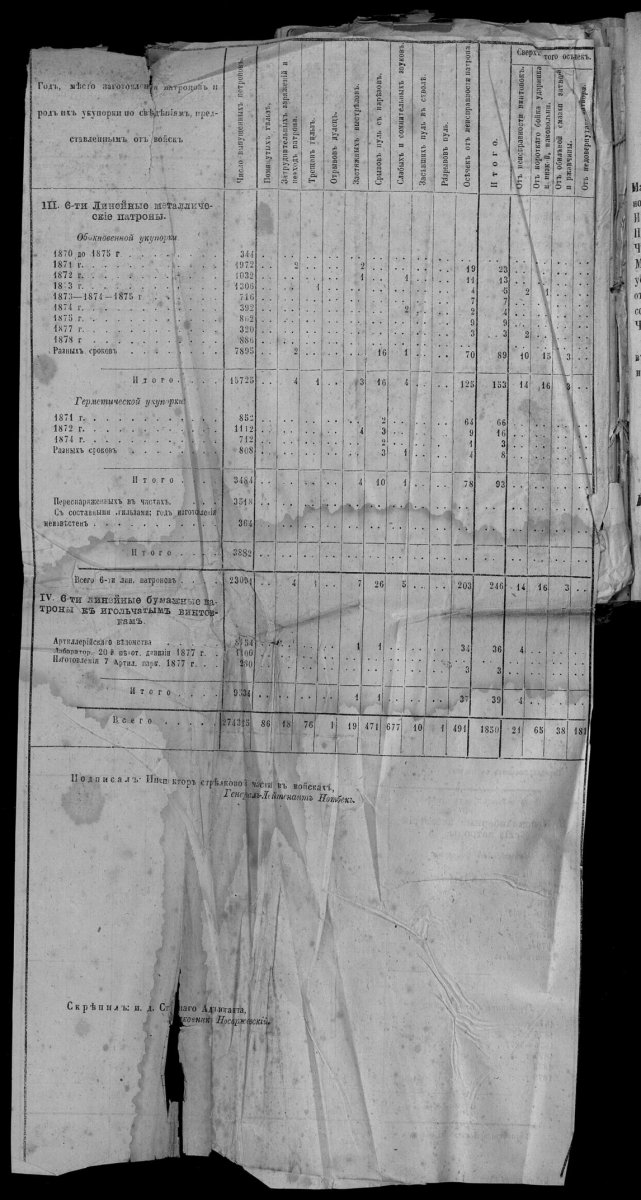 Годъ, мѣсто заготовленія патроновъ и
родъ ихъ укупорки по свѣдѣніямъ, пред-
ставленнымъ отъ войскъ.
Число выпущенныхъ патроновъ.
Помятыхъ гильзъ.
Затруднительныхъ заряженій и
невходъ патрона.
Трещенъ гильзъ.
Отрывовъ дулецъ.
Затяжныхъ выстрѣловъ.
Срывовъ пуль съ нарѣзовъ.
Слабыхъ и сомнительныхъ звуковъ.
Засѣвшихъ пуль въ стволѣ.
Разрывовъ пуль.
Осѣчекъ отъ неисправности патрона.
Итого.
Сверхъ того осѣчекъ.
Отъ неисправности винтовокъ.
Отъ короткаго бойка ударника
Отъ обильной смазки затвора
и ржавчины.
Отъ недовернутаго затвора.
III. 6-ти Линейные металличе-
скіе патроны.
Обыкновенной укупорки.
1870 до 1875 г 344
1871 г. 1972 2 2 19 23
1872 г. 1032 1 1 11 13
1873 г. 1306 1 4 5 2 1
1873—1874—1875 г 716 7 7
1874 г. 392 2 2 4
1875 г. 862 9 9
1877 г. 320 3 3 2
1878 г 886
Разныхъ сроковъ 7895 2 16 1 70 89 10 15 3
Итого 15725 4 1 3 16 4 125 153 14 16 3
Герметической укупорки.
1871 г. 852 2 64 66
1872 г. 1112 4 3 9 16
1874 г. 712 2 1 3
Разныхъ сроковъ 808 3 1 4 8
Итого 3484 4 10 1 78 93
Переснаряженныхъ въ частяхъ. 3518
Съ составными гильзами; годъ изготовленія
неизвѣстенъ 364
Итого 3882
Всего 6-ти лин. патроновъ 23091 4 1 7 26 5 203 246 14 16 3
IV. 6-ти линейные бумажные па-
троны къ игольчатымъ винтов-
камъ.
Артиллерійскаго вѣдомства 1 1 34 36 4
Лаборатор. 20 й пѣхот. дивизіи 1877 г. 1100
Изготовленія 7 Артил. парк. 1877 г. 280 3 3
Итого 9534 1 1 37 39 4
Всего 274325 86 18 76 1 19 471 677 10 1 491 1850 21 65 38 181
Подписалъ: Инспекторъ стрѣлковой части въ войскахъ,
Генералъ-Лейтенантъ Нотбекъ.
Скрѣпилъ: и. д. Ст наго Адъютанта,
ковникъ Посаржевскій.